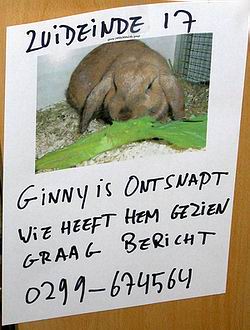 ZUIDEINDE 17
GINNY IS ONTSNAPT
WIE HEEFT HEM GEZIEN
GRAAG BERICHT
0299-674564